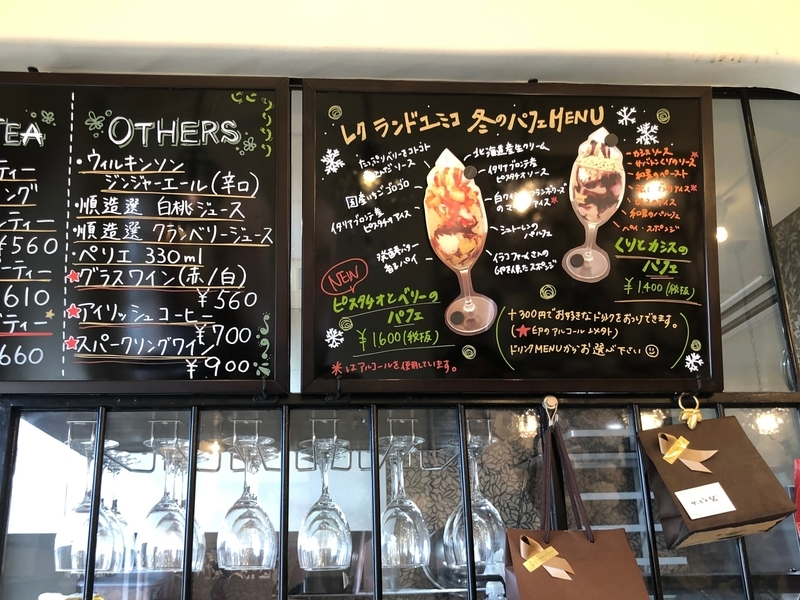 TEA
ティー
ング
ンティー
¥560
ーティー
610
ティー
660
OTHERS
・ウィルキンソン
ジンジャーエール(辛口)
・順造選 白桃ジュース
・順造選 クランベリージュース
・ペリエ 330ml
★グラスワイン(赤/白)
¥560
★アイリッシュコーヒー
¥700
★スパークリングワイン
¥900
レクランドユミコ 冬のパフェMENU
たっぷりベリーをコトコト
煮こんだソース
国産いちごゴロゴロ
イタリアブロンテ産
ピスタチオアイス
発酵バター
香るパイ
北海道産生クリーム
イタリアブロンテ産
ピスタチオソース
シュトーレンの
パルフェ
イラファームさんの
卵を使ったスポンジ
NEW
ピスタチオとベリーの
パフェ
¥1600(税抜)
※はアルコールを使用しています。
カシスソース
和栗のペースト
和栗のパルフェ
パイ・スポンジ
くりとカシスの
パフェ
¥1,400(税抜)
+300円でお好きなドリンクをおつけできます。
(★印のアルコールはメタト)
ドリンクMENUからお選べ下さい